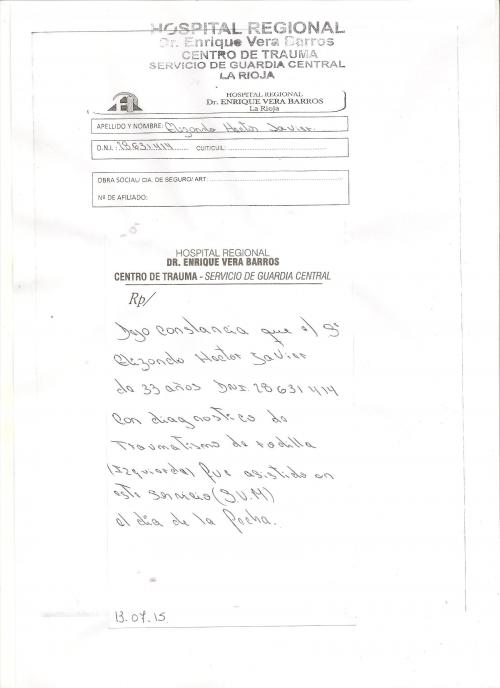 HOSPITAL REGIONAL
Dr. Enrique Vera Barros
CENTRO DE TRAUMA
SERVICIO DE GUARDIA CENTRAL
LA RIOJA
HOSPITAL REGIONAL
Dr. ENRIQUE VERA BARROS
La Rioja
APELLIDO Y NOMBRE: Elizondo Hector Javier.
D.N.I.: 28631414 CUIT/CUIL:
OBRA SOCIAL/ CIA. DE SEGURO/ ART:
Nº DE AFILIADO:
HOSPITAL REGIONAL
DR. ENRIQUE VERA BARROS
CENTRO DE TRAUMA - SERVICIO DE GUARDIA CENTRAL
Rp/
Dejo constancia que el Sr
Elizondo Hector Javier
de 33 años DNI. 28631414
con diagnostico de
Traumatismo de rodilla
(Izquierda) fue asistido en
este servicio (S.U.M)
el día de la fecha.
13.07.15